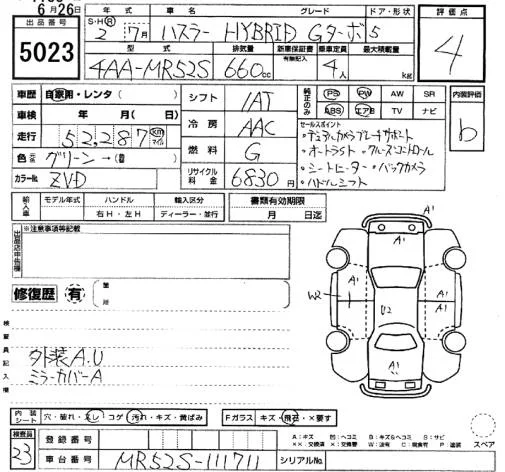 6月26日
出品番号 5023
年式 S・H・R 2年7月 車名 グレード ハスラー HYBRID Gターボ ドア・形状 5
型式 4AA-MR52S 排気量 660cc 新車保証書 有無記入 乗車定員 4人 最大積載量 kg
評価点 4
車歴 自家用・レンタ( )
車検 年 月( 日)
走行 52,287 km マイル
色 元色 グリーン→( 色 )
カラーNo. ZVD
シフト IAT
冷房 AAC
燃料 G
リサイクル料金 6830円
純正のみ PS PW AW SR
ABS エアB TV ナビ
内装評価 b
セールスポイント
・デュアルカメラブレーキサポート
・オートライト ・クルーズコントロール
・シートヒーター ・バックカメラ
・パドルシフト
輸入車 モデル年式 ハンドル 右H・左H 輸入区分 ディーラー・並行
書類有効期限 月 日迄
出品店申告欄 ※注意事項等記載
修復歴 有 箇所
検査員記入欄
外装A.U
ミラーカバーA
A1
A1
A1
A1
W2
U2
内装シート 穴・破れ・スレ・コゲ・汚れ・キズ・黄ばみ
Fガラス キズ・飛石・×要す
スペア
A:キズ 凹:ヘコミ B:キズ&ヘコミ S:サビ
××:交換済 ×:交換要 W:波有 C:腐食有 P:塗装
検査員 23
登録番号
車台番号 MR52S-111711 シリアルNo.